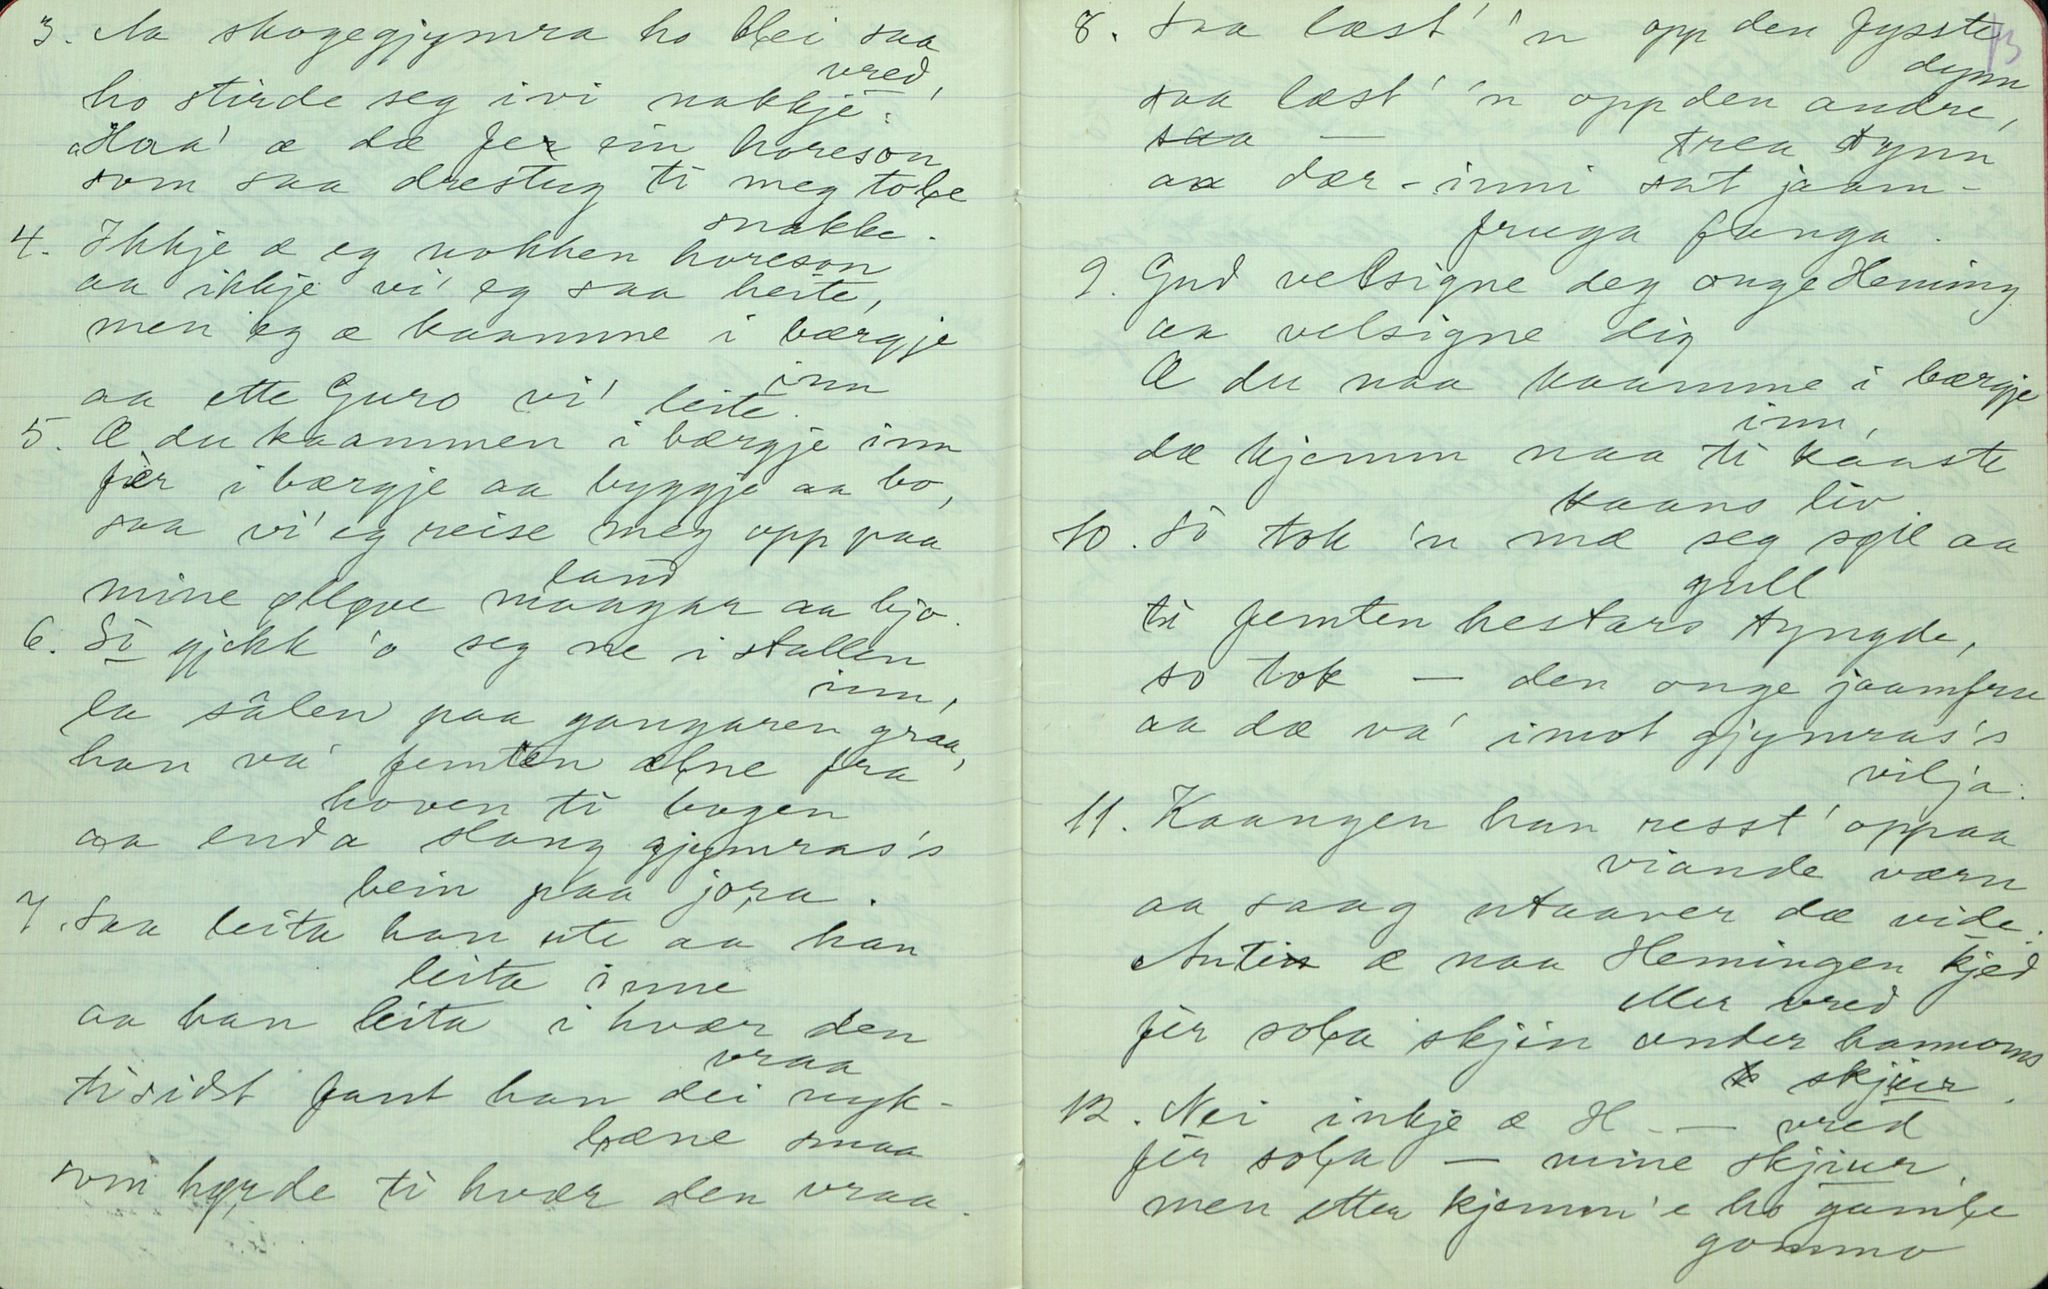 3. Aa skogegjymra ho blei saa
vred,
ho stirde seg ivi nakkje:
"Haa' æ dæ fer ein horeson
som saa drestug ti meg tole
snakke.
4. Ikkje æ eg nokken horeson
aa ikkje vi' eg saa heite,
men eg æ kaamme i bærgje
inn
aa ette Guro vi' leite.
5. Æ du kaammen i bærgje inn
fer i bærgje aa byggje aa bo,
saa vi' eg reise meg opp paa
land
mine øllgve maagar aa bjo.
6. So gjekk 'o seg ne i stallen
inn,
la sâlen paa gangaren graa,
han va' femten alne fra
hoven ti bogen
aa enda slang gjymras's
bein paa jora.
7. Saa leita han ute aa han
leita inne
aa han leita i hvær den
vraa
ti sidst fant han dei nyk-
læne smaa
som hørde ti hvær den vraa.
8. Saa læst' 'n opp den fysste
dynn
saa læst' 'n opp den andre,
saa — trea dynn
aa dær-inni sat jaam-
fruga fanga.
9. Gud velsigne deg onge Heming
aa velsigne dig
Æ du naa kaamme i bærgje
inn,
dæ kjemm naa ti kaaste
kaans liv
10. So tok 'n mæ seg sølv aa
gull
ti femten hestars tyngde,
so tok — den onge jaamfru
aa dæ va' imot gjymras's
vilja.
11. Kaangen han resst' oppaa
viande værn
aa saag utaaver dæ vide.
Anten æ naa Hemingen kjed
eller vred
fer sola skjin onder hannoms
skjiur.
12. Nei inkje æ H. — vred
fer sola — mine skjiur,
men etter kjemm'e ho gamle
gommo